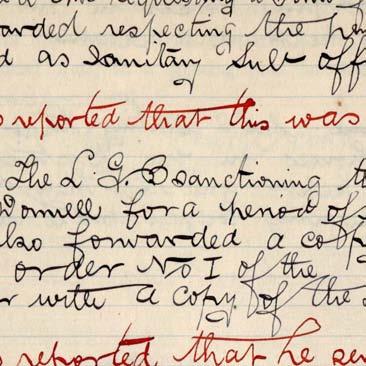 arded respecting the
d as Sanitary Sub off
s reported that this was
The L. G. B sanctioning t
Donnell for a period of
also forwarded a copy
order No I of the
r with a copy of the
s reported that he se